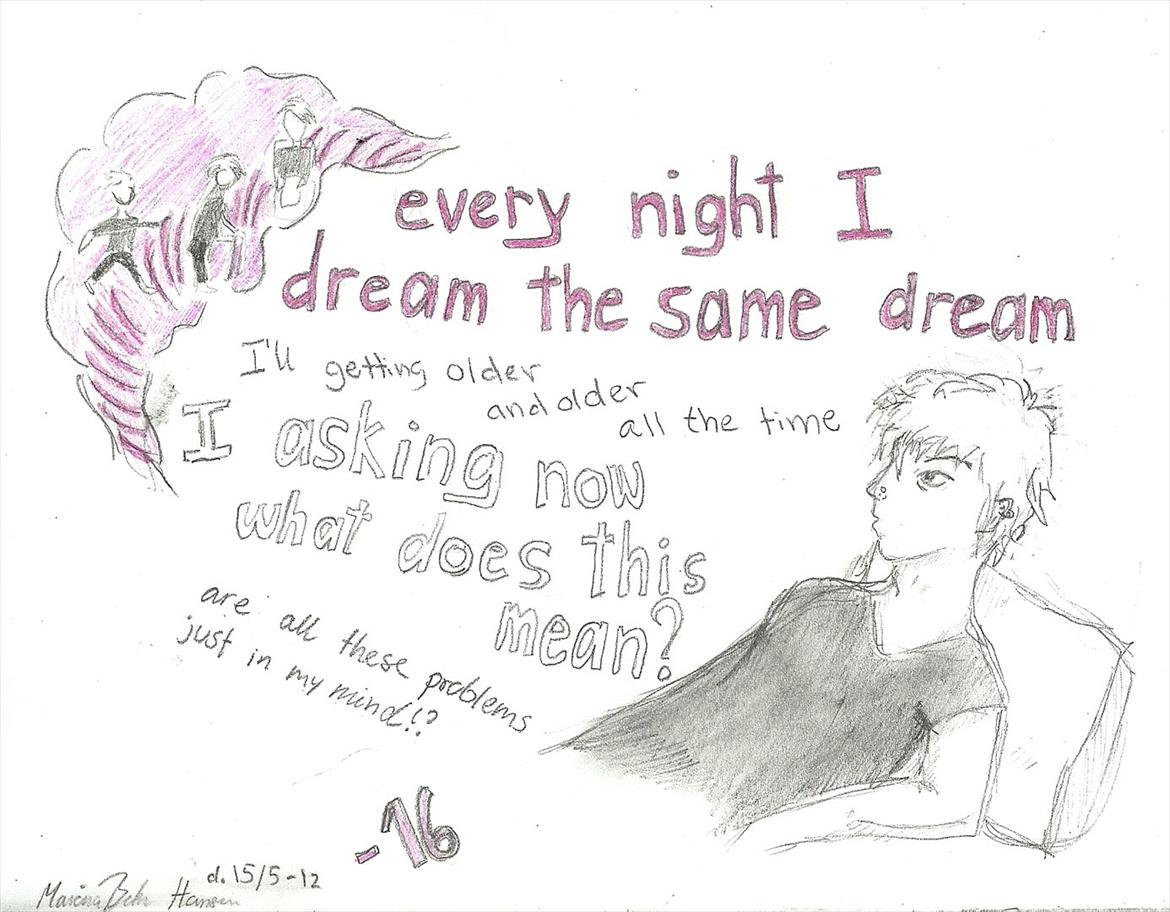 every night I
dream the same dream
I'll getting older
and older
all the time
I asking now
what does this
mean?
are all these problems
just in my mind!?
-16
d. 15/5-12
Hansen